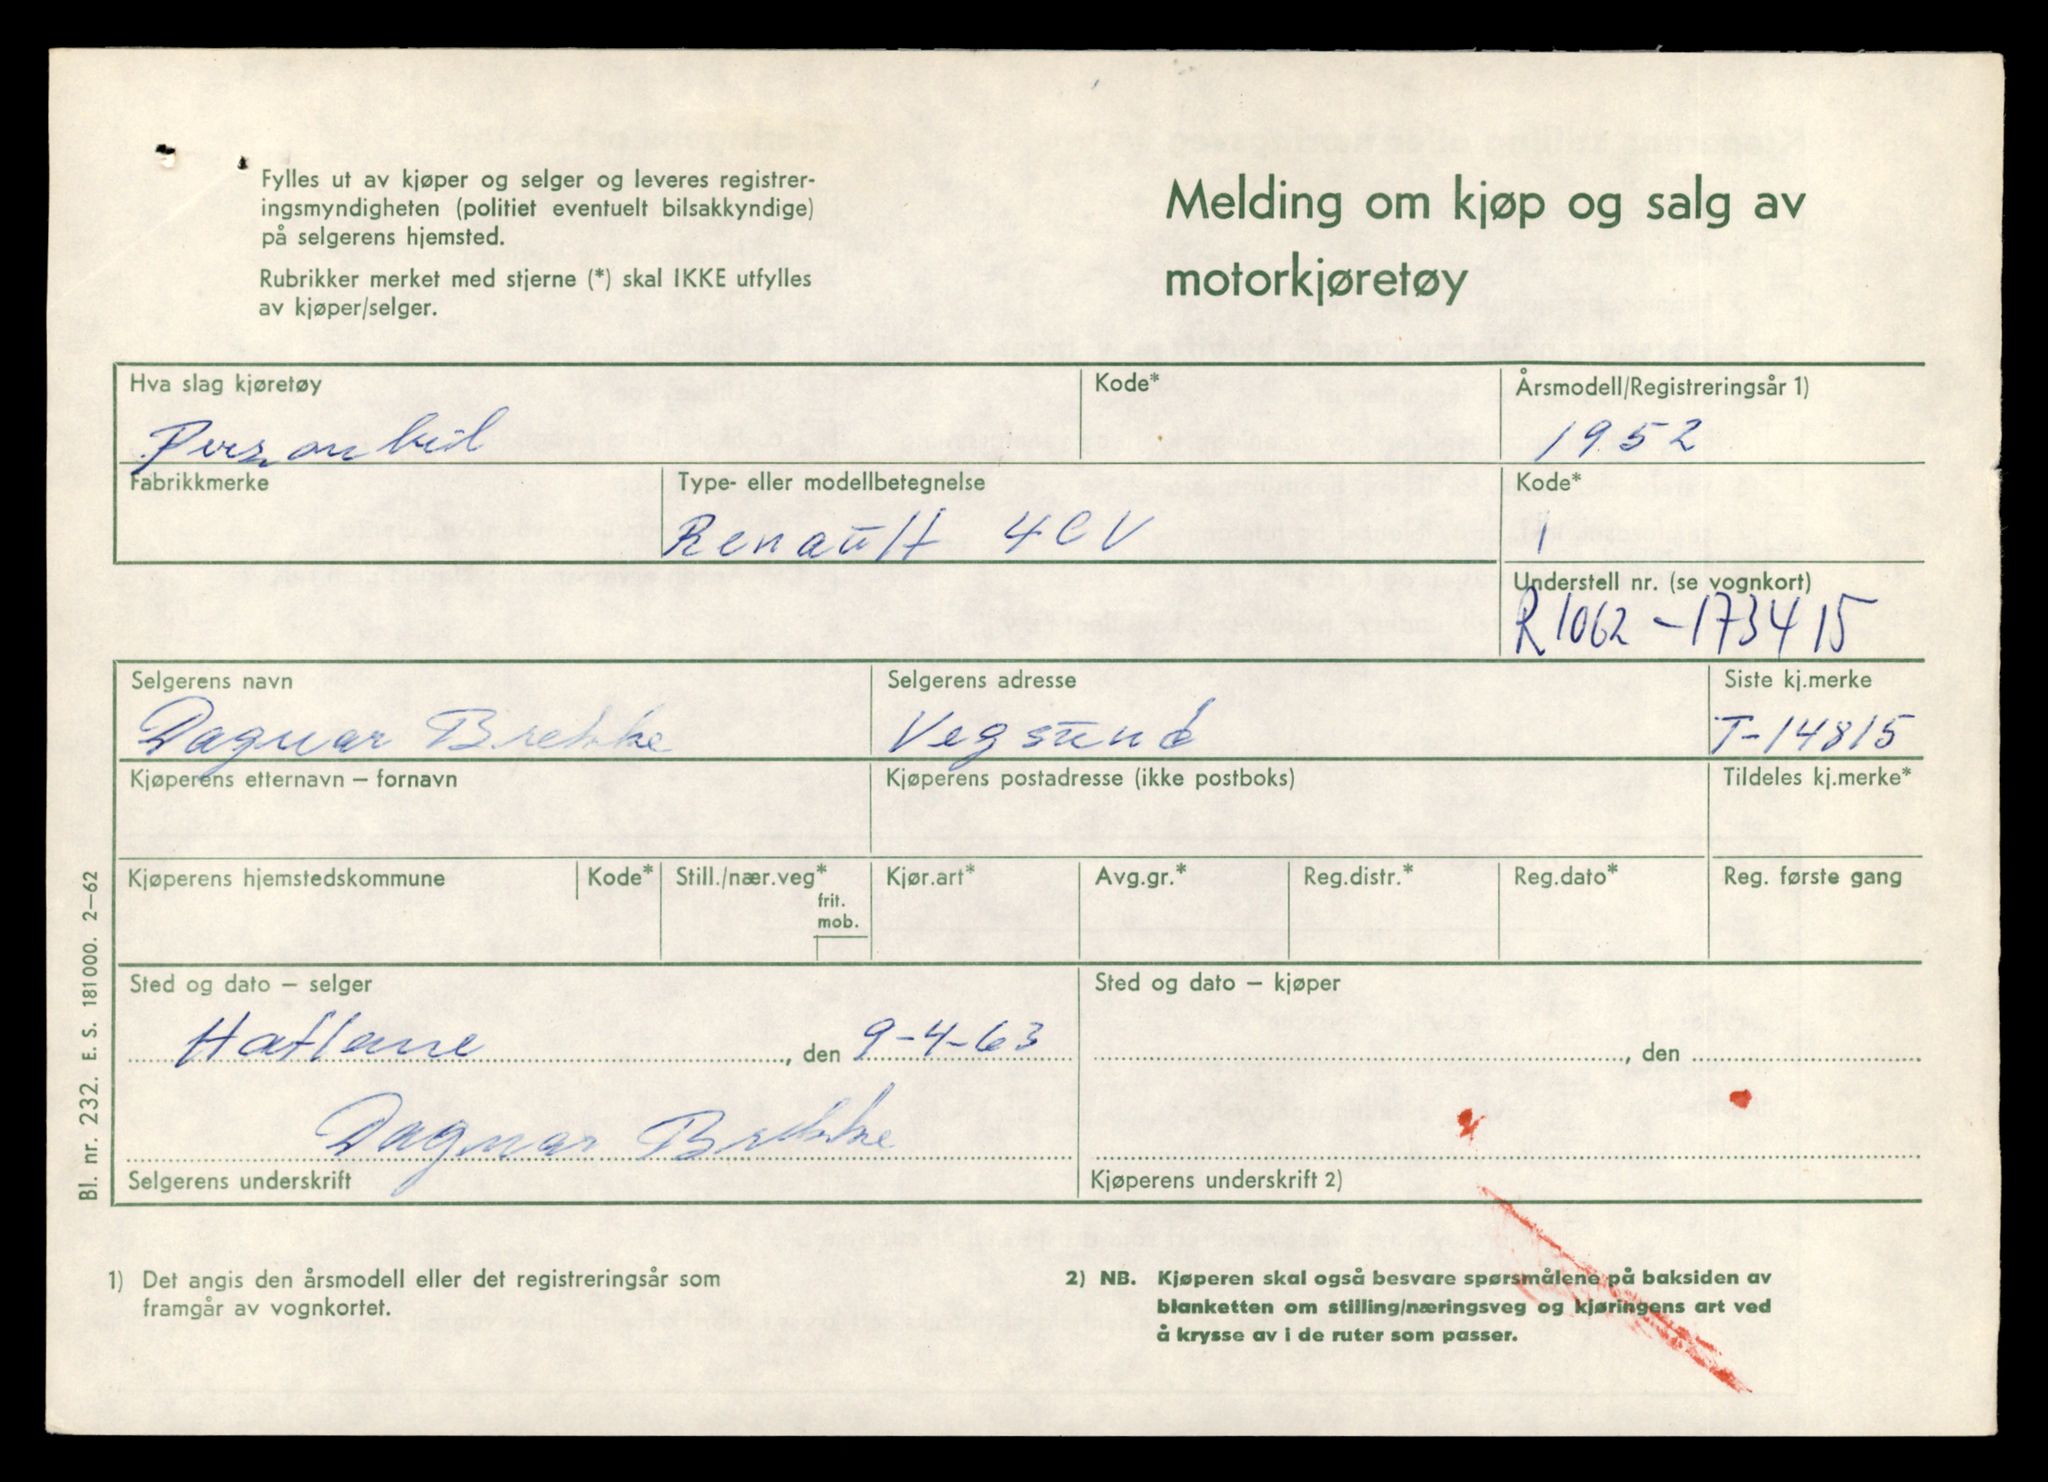 Fylles ut av kjøper og selger og leveres registrer-
ingsmyndigheten (politiet eventuelt bilsakkyndige)
på selgerens hjemsted.
Rubrikker merket med stjerne (*) skal IKKE utfylles
av kjøper/selger.
Melding om kjøp og salg av
motorkjøretøy
Hva slag kjøretøy
Personbil
Kode*
Årsmodell/Registreringsår 1)
1952
Fabrikkmerke
Type- eller modellbetegnelse
Renault 4CV
Kode*
1
Understell nr. (se vognkort)
R1062-173415
Selgerens navn
Dagnar Brekke
Selgerens adresse
Vegsund
Siste kj.merke
T-14815
Kjøperens etternavn – fornavn
Kjøperens postadresse (ikke postboks)
Tildeles kj.merke*
Kjøperens hjemstedskommune
Kode*
Still./nær.veg*
frit.
mob.
Kjør.art*
Avg.gr.*
Reg.distr.*
Reg.dato*
Reg. første gang
Sted og dato – selger
, den 9-4-63
Sted og dato – kjøper
, den
Dagnar Brekke
Selgerens underskrift
Kjøperens underskrift 2)
Bl. nr. 232. E. S. 181000. 2–62
1) Det angis den årsmodell eller det registreringsår som
framgår av vognkortet.
2) NB. Kjøperen skal også besvare spørsmålene på baksiden av
blanketten om stilling/næringsveg og kjøringens art ved
å krysse av i de ruter som passer.